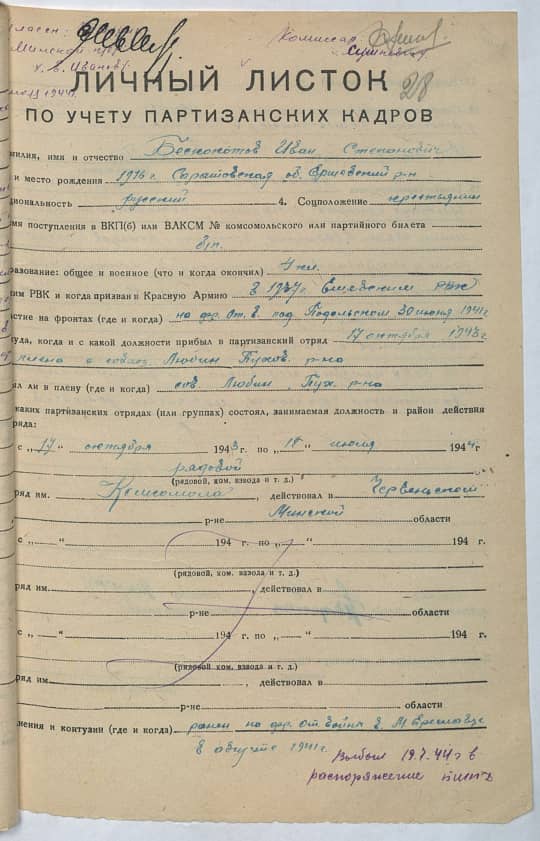 Комиссар:
Минской
28
ЛИЧНЫЙ ЛИСТОК
ПО УЧЕТУ ПАРТИЗАНСКИХ КАДРОВ
милия, имя и отчество Иван Степанович
и место рождения 1916 г. Саратовская об. Ершовский р-н
циональность русский 4. Соцположение крестьянин
мя поступления в ВКП(б) или ВЛКСМ № комсомольского или партийного билета
б/п.
разование: общее и военное (что и когда окончил) 4 кл.
ким РВК и когда призван в Красную Армию РВК
стие на фронтах (где и когда) на фр. От. в. под Подольском 30 июня 1941 г.
куда, когда и с какой должности прибыл в партизанский отряд 17 октября 1943 г
плена с Любин Пухов. р-на
ыл ли в плену (где и когда) Любин, Пух. р-на
каких партизанских отрядах (или группах) состоял, занимаемая должность и район действия
ряда:
с „17" октября 1943 г. по „10" июля 1944 г
рядовой
(рядовой, ком. взвода и т. д.)
ряд им. Комсомола, действовал в Червенском
р-не Минской области
с „ — " 194 г. по „ — " 194 г.
(рядовой, ком. взвода и т. д.)
ряд им., действовал в
р-не области
с „ — " 194 г. по „ — " 194 г.
(рядовой ком. взвода и т. д.)
ряд им., действовал в
р-не области
нения и контузии (где и когда) ранен на фр. От войны
в августе 1941 г.
Выбыл 19.7.44 г в
распоряжение